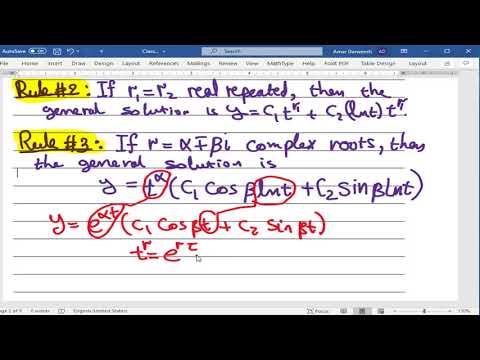 AutoSave Off
Class...
Search
Amar Darweesh AD
File Home Insert Draw Design Layout References Mailings Review View Help MathType PDFelement Acrobat
Rule#2: If r₁=r₂ real repeated, then the
general solution is y=C₁t^r₁ + C₂(lnt)t^r₁.
Rule #3: If r=α∓βi complex roots, then
the general solution is
y=t^α(C₁ Cos βlnt + C₂ Sin βlnt)
y=e^αt(C₁ Cos βt + C₂ Sin βt)
t^r=e^rτ
English (United States)